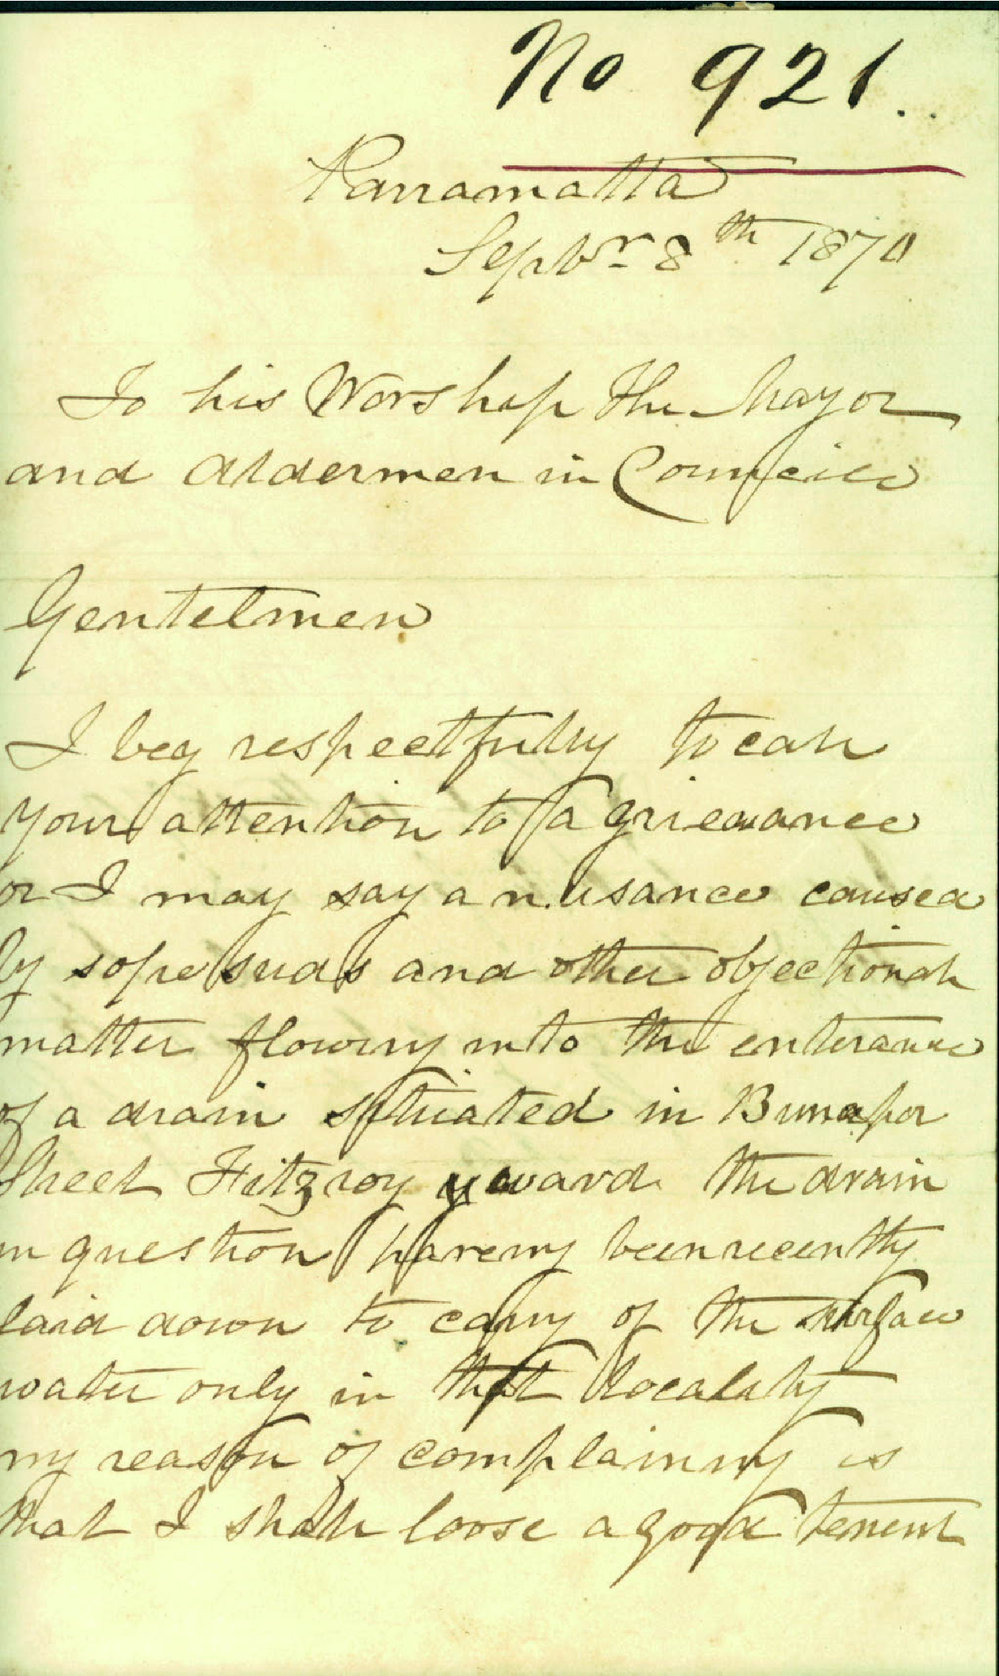 No 921.
Parramatta
Septbr 8th 1870
To his Worshop the Mayor
and Aldermen in Council
Gentelmen
I beg respectfully to call
your attention to a grieavance
or I may say a nusance caused
by sope suds and other objectionall
matter flowing into the enterance
of a drain situated in
Street Fitzroy ward the drain
in question having been recently
laid down to carry of the surface
water only in that locality
my reason of complaining is
that I shall loose a good tenent